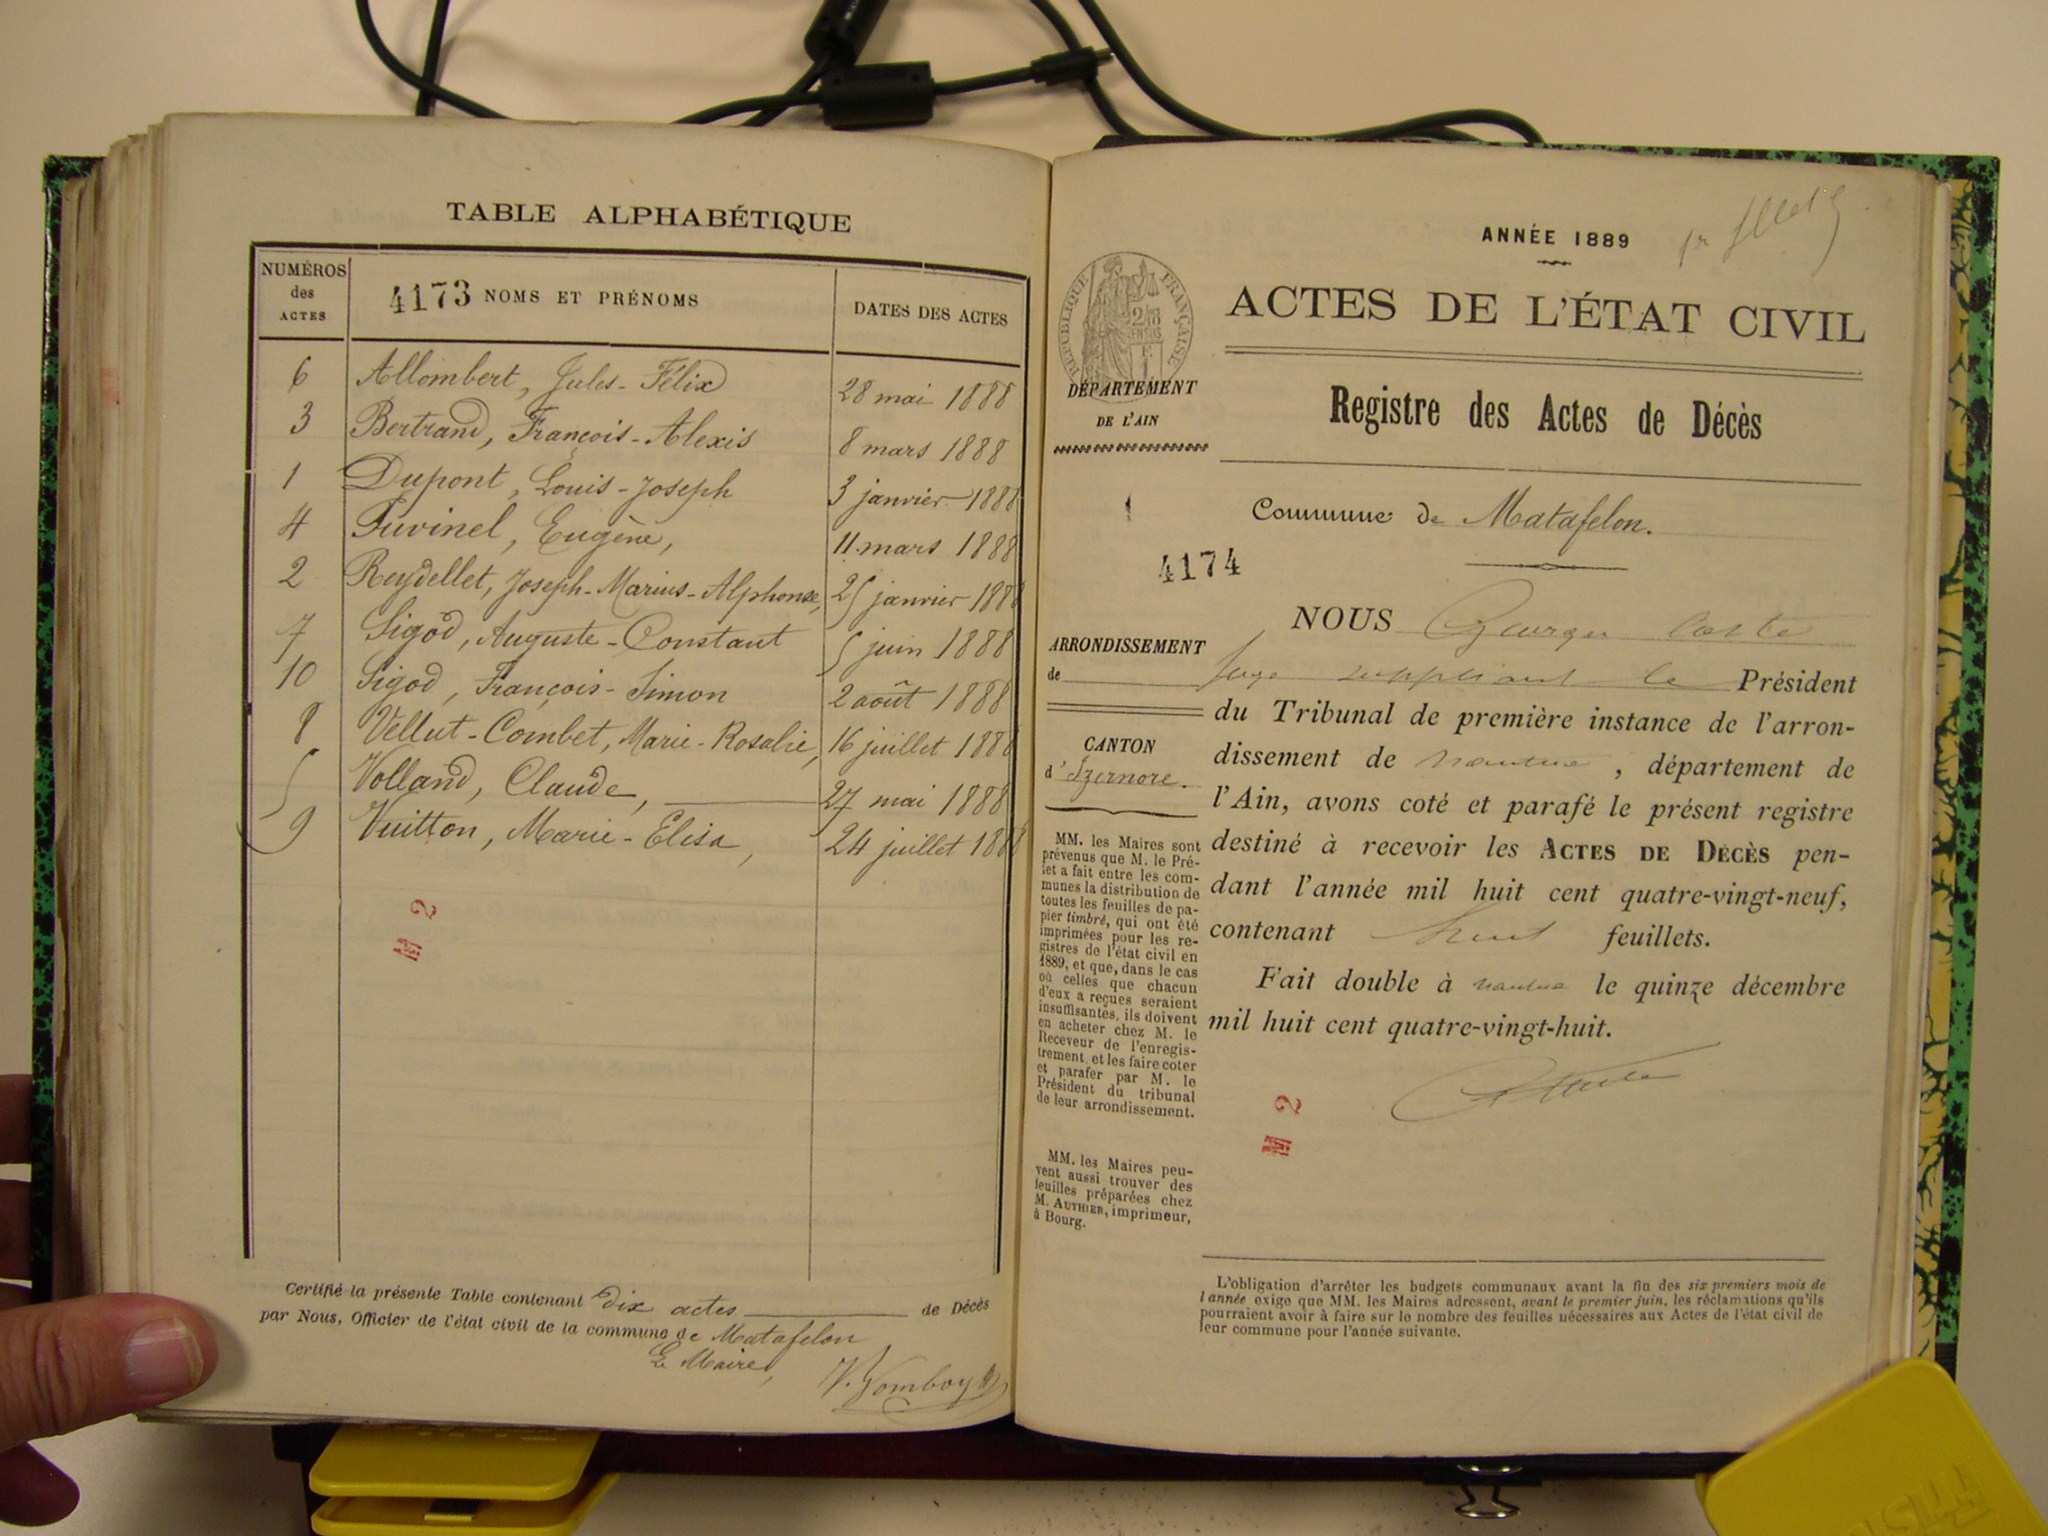 TABLE ALPHABÉTIQUE
NUMÉROS des ACTES
4173 NOMS ET PRÉNOMS
DATES DES ACTES
6 Allombert, Jules-Félix 28 mai 1888
3 Bertrand, François-Alexis 8 mars 1888
1 Dupont, Louis-Joseph 3 janvier 1888
4 Juvinel, Eugène, 11 mars 1888
2 Reydellet, Joseph-Marius-Alphonse, 25 janvier 1888
7 Sigod, Auguste-Constant 5 juin 1888
10 Sigod, François-Simon 2 août 1888
8 Vellut-Combet, Marie-Rosalie, 16 juillet 1888
5 Volland, Claude, 27 mai 1888
9 Vuitton, Marie-Elisa, 24 juillet 1888
2
Certifié la présente Table contenant dix actes de Décès
par Nous, Officier de l'état civil de la commune de Matafelon
Le Maire,
ANNÉE 1889
ACTES DE L'ÉTAT CIVIL
RÉPUBLIQUE FRANÇAISE
DÉPARTEMENT
DE L'AIN
Registre des Actes de Décès
Commune de Matafelon.
4174
NOUS Georges Coste
ARRONDISSEMENT
de
Juge suppléant le Président
du Tribunal de première instance de l'arron-
dissement de Nantua, département de
l'Ain, avons coté et parafé le présent registre
destiné à recevoir les ACTES DE DÉCÈS pen-
dant l'année mil huit cent quatre-vingt-neuf,
contenant huit feuillets.
Fait double à Nantua le quinze décembre
mil huit cent quatre-vingt-huit.
CANTON
d'Izernore.
MM. les Maires sont
prévenus que M. le Pré-
fet a fait entre les com-
munes la distribution de
toutes les feuilles de pa-
pier timbré, qui ont été
imprimées pour les re-
gistres de l'état civil en
1889, et que, dans le cas
où celles que chacun
d'eux a reçues seraient
insuffisantes, ils doivent
en acheter chez M. le
Receveur de l'enregis-
trement et les faire coter
et parafer par M. le
Président du tribunal
de leur arrondissement.
MM. les Maires peu-
vent aussi trouver des
feuilles préparées chez
M. AUTHIER, imprimeur,
à Bourg.
2
L'obligation d'arrêter les budgets communaux avant la fin des six premiers mois de
l'année exige que MM. les Maires adressent, avant le premier juin, les réclamations qu'ils
pourraient avoir à faire sur le nombre des feuilles nécessaires aux Actes de l'état civil de
leur commune pour l'année suivante.